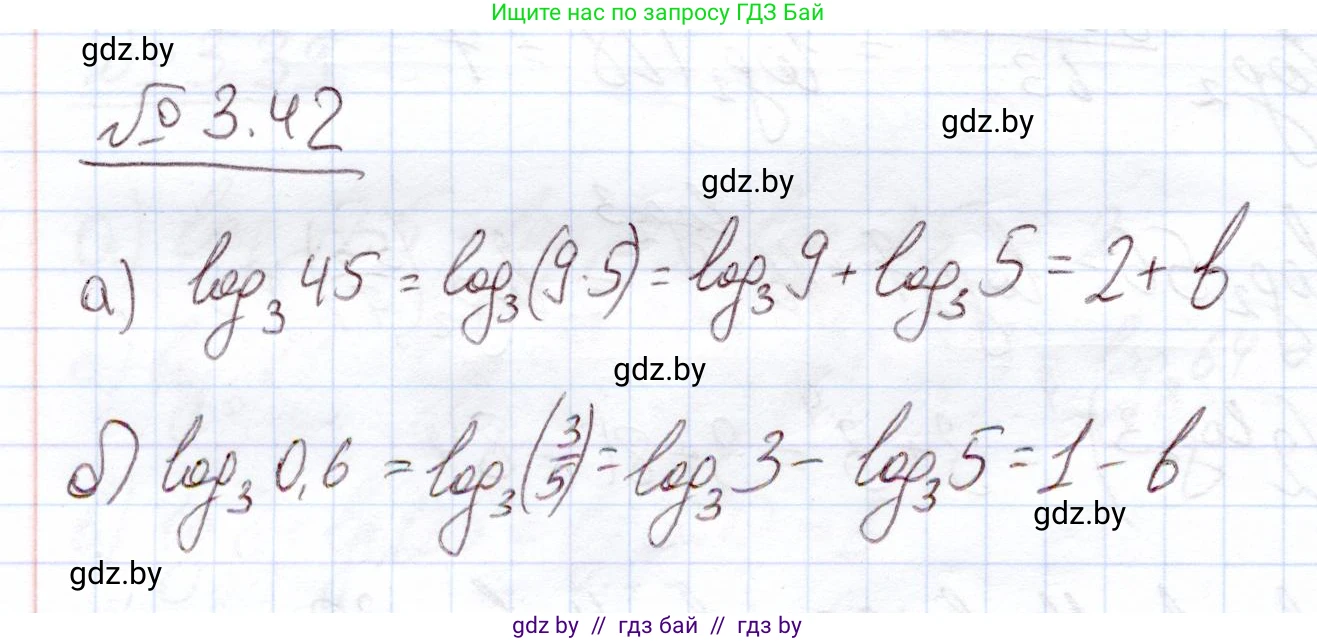 Ищите нас по запросу ГДЗ Бай
gdz.by
№ 3.42
gdz.by
gdz.by
а) log₃ 45 = log₃(9·5) = log₃ 9 + log₃ 5 = 2 + b
gdz.by
б) log₃ 0,6 = log₃(3/5) = log₃ 3 − log₃ 5 = 1 − b
gdz.by
gdz.by
gdz by // гдз бай // гдз by